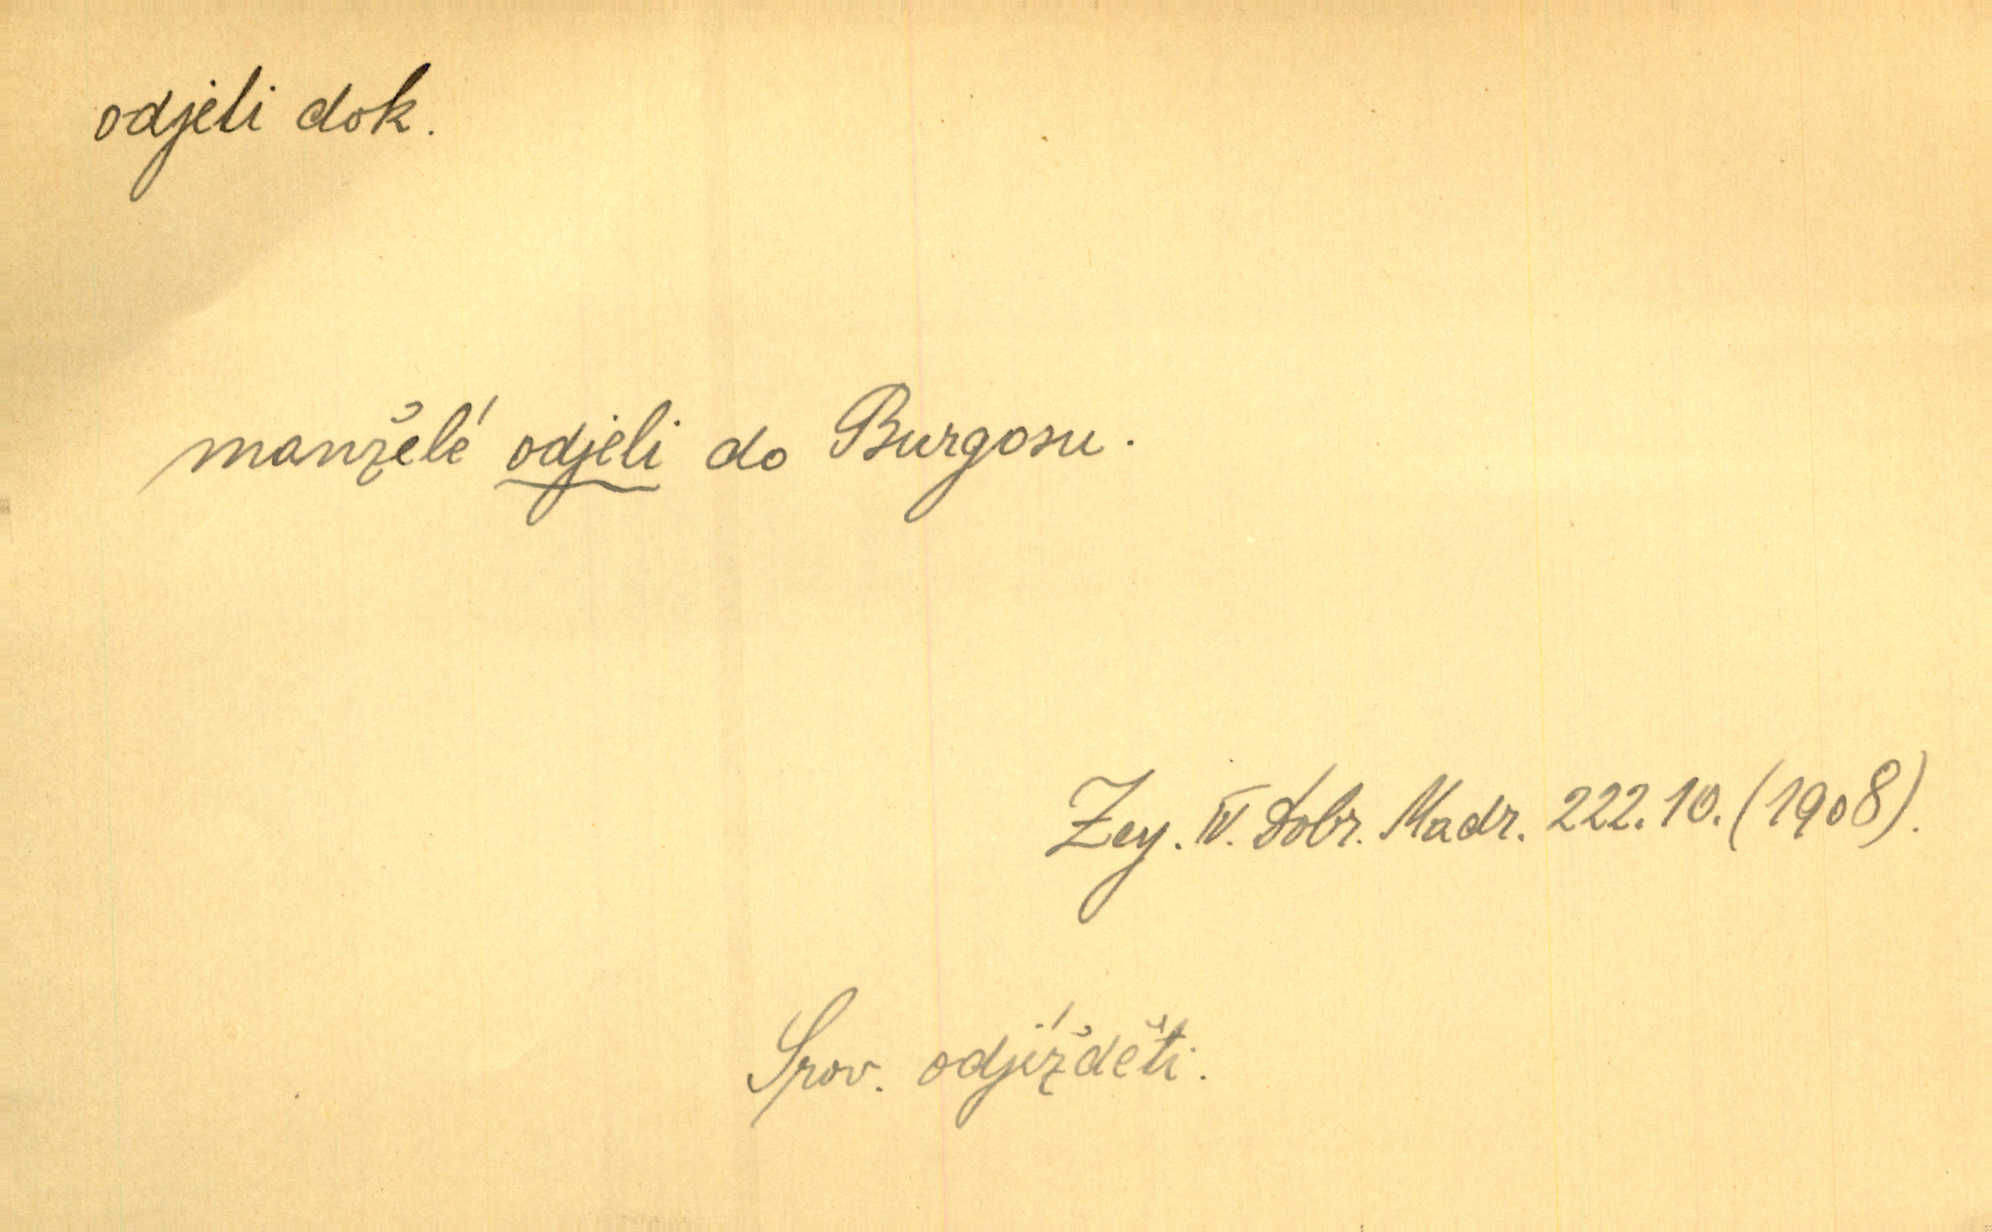 odjeti dok.
manželé odjeli do Burgosu.
Zey. IV. Dobr. Madr. 222.10. (1908).
Srov. odjížděti.